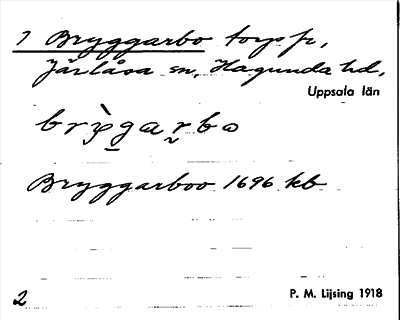 1 Bryggarbo torp fr,
Järlåsa sn, Hagunda hd,
Uppsala län
Bryggarboo 1696 kb
2
P. M. Lijsing 1918